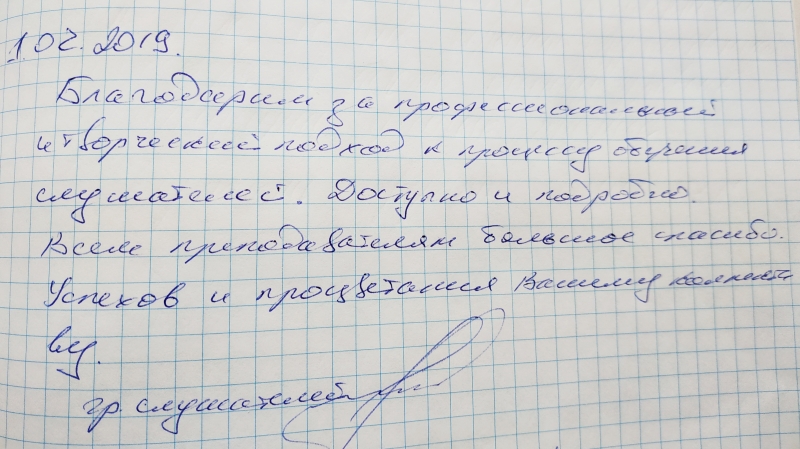 2019.
Благодарим за профессиональный
и творческий подход к процессу обучения
слушателей. Доступно и подробно.
Всем преподавателям большое спасибо.
Успехов и процветания Вашему коллекти
ву.
гр. слушателей